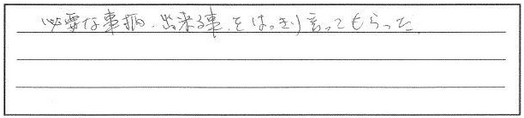 必要な事柄、出来る事をはっきり言ってもらった。